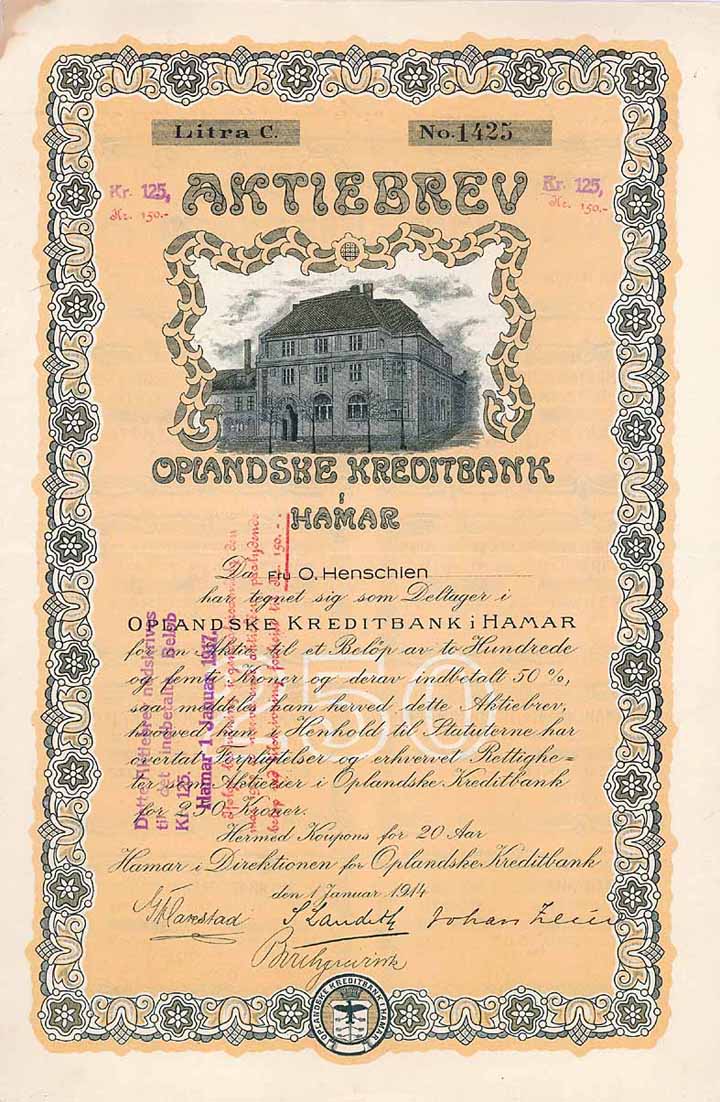 Litra C. No. 1425
Kr. 125, AKTIEBREV Kr. 125,
Kr. 150.- Kr. 150.-
OPLANDSKE KREDITBANK
i
HAMAR
Da Fru O. Henschien
har tegnet sig som Deltager i
OPLANDSKE KREDITBANK i HAMAR
for en Aktie til et Beløp av to Hundrede
og femti Kroner og derav indbetalt 50 %,
saa meddeles ham herved dette Aktiebrev,
hvorved han i Henhold til Statuterne har
overtat Forpligtelser og erhvervet Rettighe=
ter som Aktieeier i Oplandske Kreditbank
for 250 Kroner.
250
Hermed Koupons for 20 Aar
Hamar i Direktionen for Oplandske Kreditbank
den 1 Januar 1914
Dette Aktiebrev nedskrives
til det indbetalte Beløb
Kr 125.
Hamar 1. Januar 1937.
150.-
OPLANDSKE KREDITBANK HAMAR